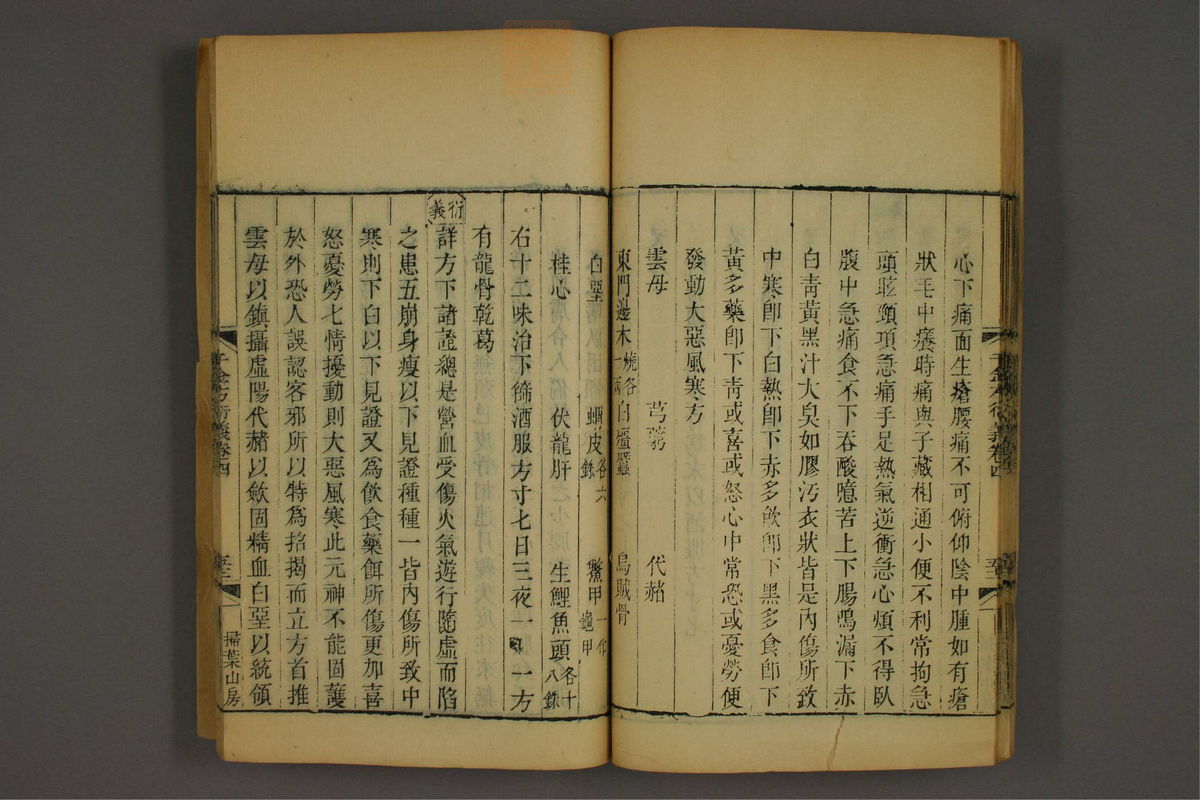 心下痛面生瘡腰痛不可俯仰陰中腫如有瘡
狀毛中癢時痛與子藏相通小便不利常拘急
頭眩頸項急痛手足熱氣逆衝急心煩不得臥
腹中急痛食不下吞酸噫苦上下腸鳴漏下赤
白青黃黑汁大臭如膠汚衣狀皆是內傷所致
中寒卽下白熱卽下赤多飲卽下黑多食卽下
黃多藥卽下青或喜或怒心中常恐或憂勞便
發動大惡風寒方
雲母 芎藭 代赭
東門邊木燒各一兩 白殭蠶 烏賊骨
白堊 蝟皮各六銖 鱉甲一作龜甲
桂心 伏龍肝 生鯉魚頭各十八銖
右十二味治下篩酒服方寸七日三夜一一方
有龍骨乾葛
衍義
詳方下諸證總是營血受傷火氣遊行隨虛而陷
之患五崩身瘦以下見證種種一皆內傷所致中
寒則下白以下見證又為飲食藥餌所傷更加喜
怒憂勞七情擾動則大惡風寒此元神不能固護
於外恐人誤認客邪所以特為拈揭而立方首推
雲母以鎮攝虛陽代赭以斂固精血白堊以統領
千金方衍義卷四
掃葉山房